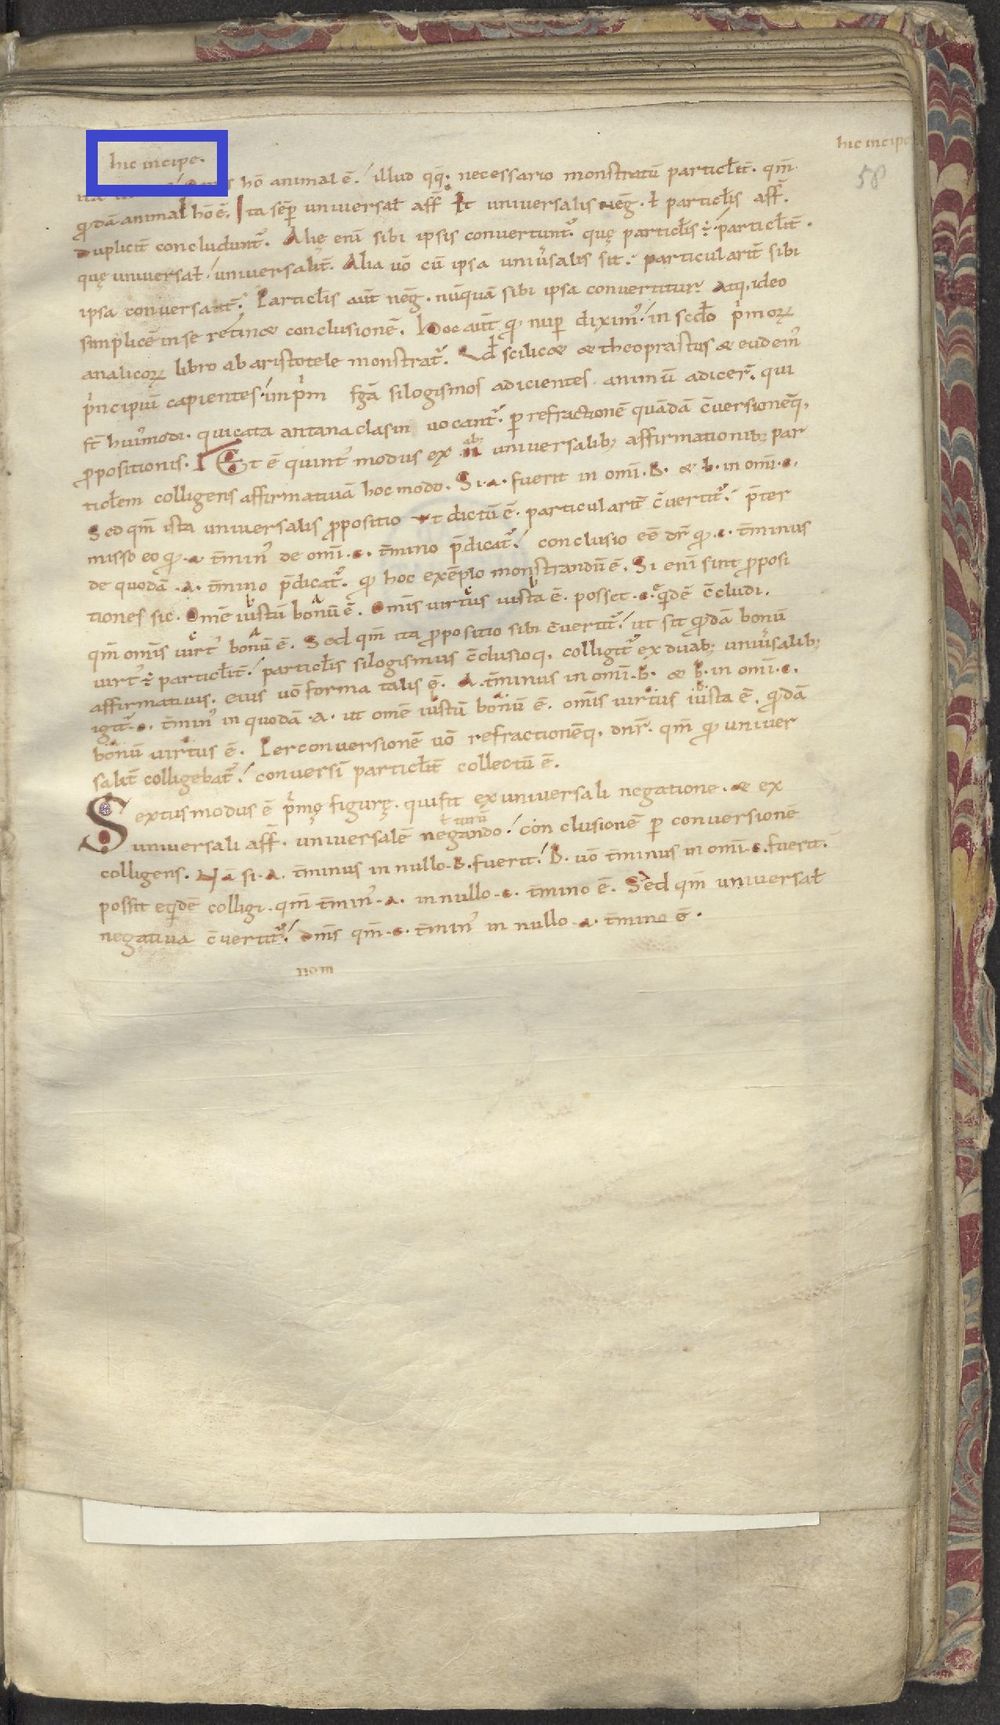 hic incipe.
hic incipe
58
hō animal ē. illud qq. necessario monstratū particłit̄. qm̄
q̄dā animal hō ē. Ita sēp universał aff̄. Et universalis neḡ. ł particłis aff̄.
duplicit̄ concludunt᷑. Alię enī sibi ipsis convertunt᷑. quę particłis ÷ particłit̄.
quę universał. universalit̄. Alia vō cū ipsa univ̄salis sit. particularit̄ sibi
ipsa conversant᷑. Particłis aūt neḡ. nūquā sibi ipsa convertitur. Atq, ideo
simplicē in se retin& conclusionē. Hoc aūt qđ nup̄ diximꝰ. in scđo p̄moꝝ
analicoꝝ libro ab aristotele monstrat᷑. Qđ scilic& & theoprastus & eudemꝰ
p̄ncipiū capientes. in p̄m fḡā silogismos adicientes animū adicer̄. qui
st̄ huiꝰmodi. qui cata antanaclasin vocant᷑. p̄ refractionē quādā c̄versionēq,
p̄positionis. Et ē quintꝰ modus ex ii ab; universalib; affirmationib; par
ticłem colligens affirmativā hoc modo. Si .a. fuerit in omī .b. & .b. in omī .c.
Sed qm̄ ista universalis p̄positio ut dictū ē. particularit̄ c̄vertit᷑. p̄ter
misso eo qđ .a. t̄minꝰ de omī .c. t̄mino p̄dicat᷑. conclusio eē dr̄ qđ .c. t̄minus
de quodā .a. t̄mino p̄dicat᷑. qđ hoc exēplo monstrandū ē. Si enī sint p̄posi
tiones sic. Omē iustū bonū ē. Omīs virtus iusta ē. posset .c. q̄dē c̄cludi.
qm̄ omīs virt᷑ bonū ē. Sed qm̄ ita p̄positio sibi c̄vertit᷑. ut sit q̄dā bonū
virtꝰ ÷ particłit̄. particłis silogismus c̄clusioq, colligit᷑ ex duab; univ̄salib;
affirmativis. eius vō forma talis ē. A. t̄minus in omī .b. & .b. in omī .c.
igit᷑ .c. t̄minꝰ in quodā .a. ut omē iustū bonū ē. omīs virtus iusta ē. q̄dā
bonū virtus ē. Per conversionē vō refractionēq, dnr̄. qm̄ qđ univer
salit̄ colligebat᷑. conversī particłit̄ collectū ē.
Sextus modus ē p̄mę figurę. qui fit ex universali negatione. & ex
universali aff̄. universalē negando. conclusionē p̄ conversionē
colligens. Nā si .A. t̄minus in nullo .B. fuerit. B. vō t̄minus in omī .c. fuerit.
possit eq̄dē colligi. qm̄ t̄minꝰ .a. in nullo .c. t̄mino ē. Sed qm̄ universał
negativa c̄vertit᷑. dnīs qm̄ .c. t̄minꝰ in nullo .a. t̄mino ē.
nam